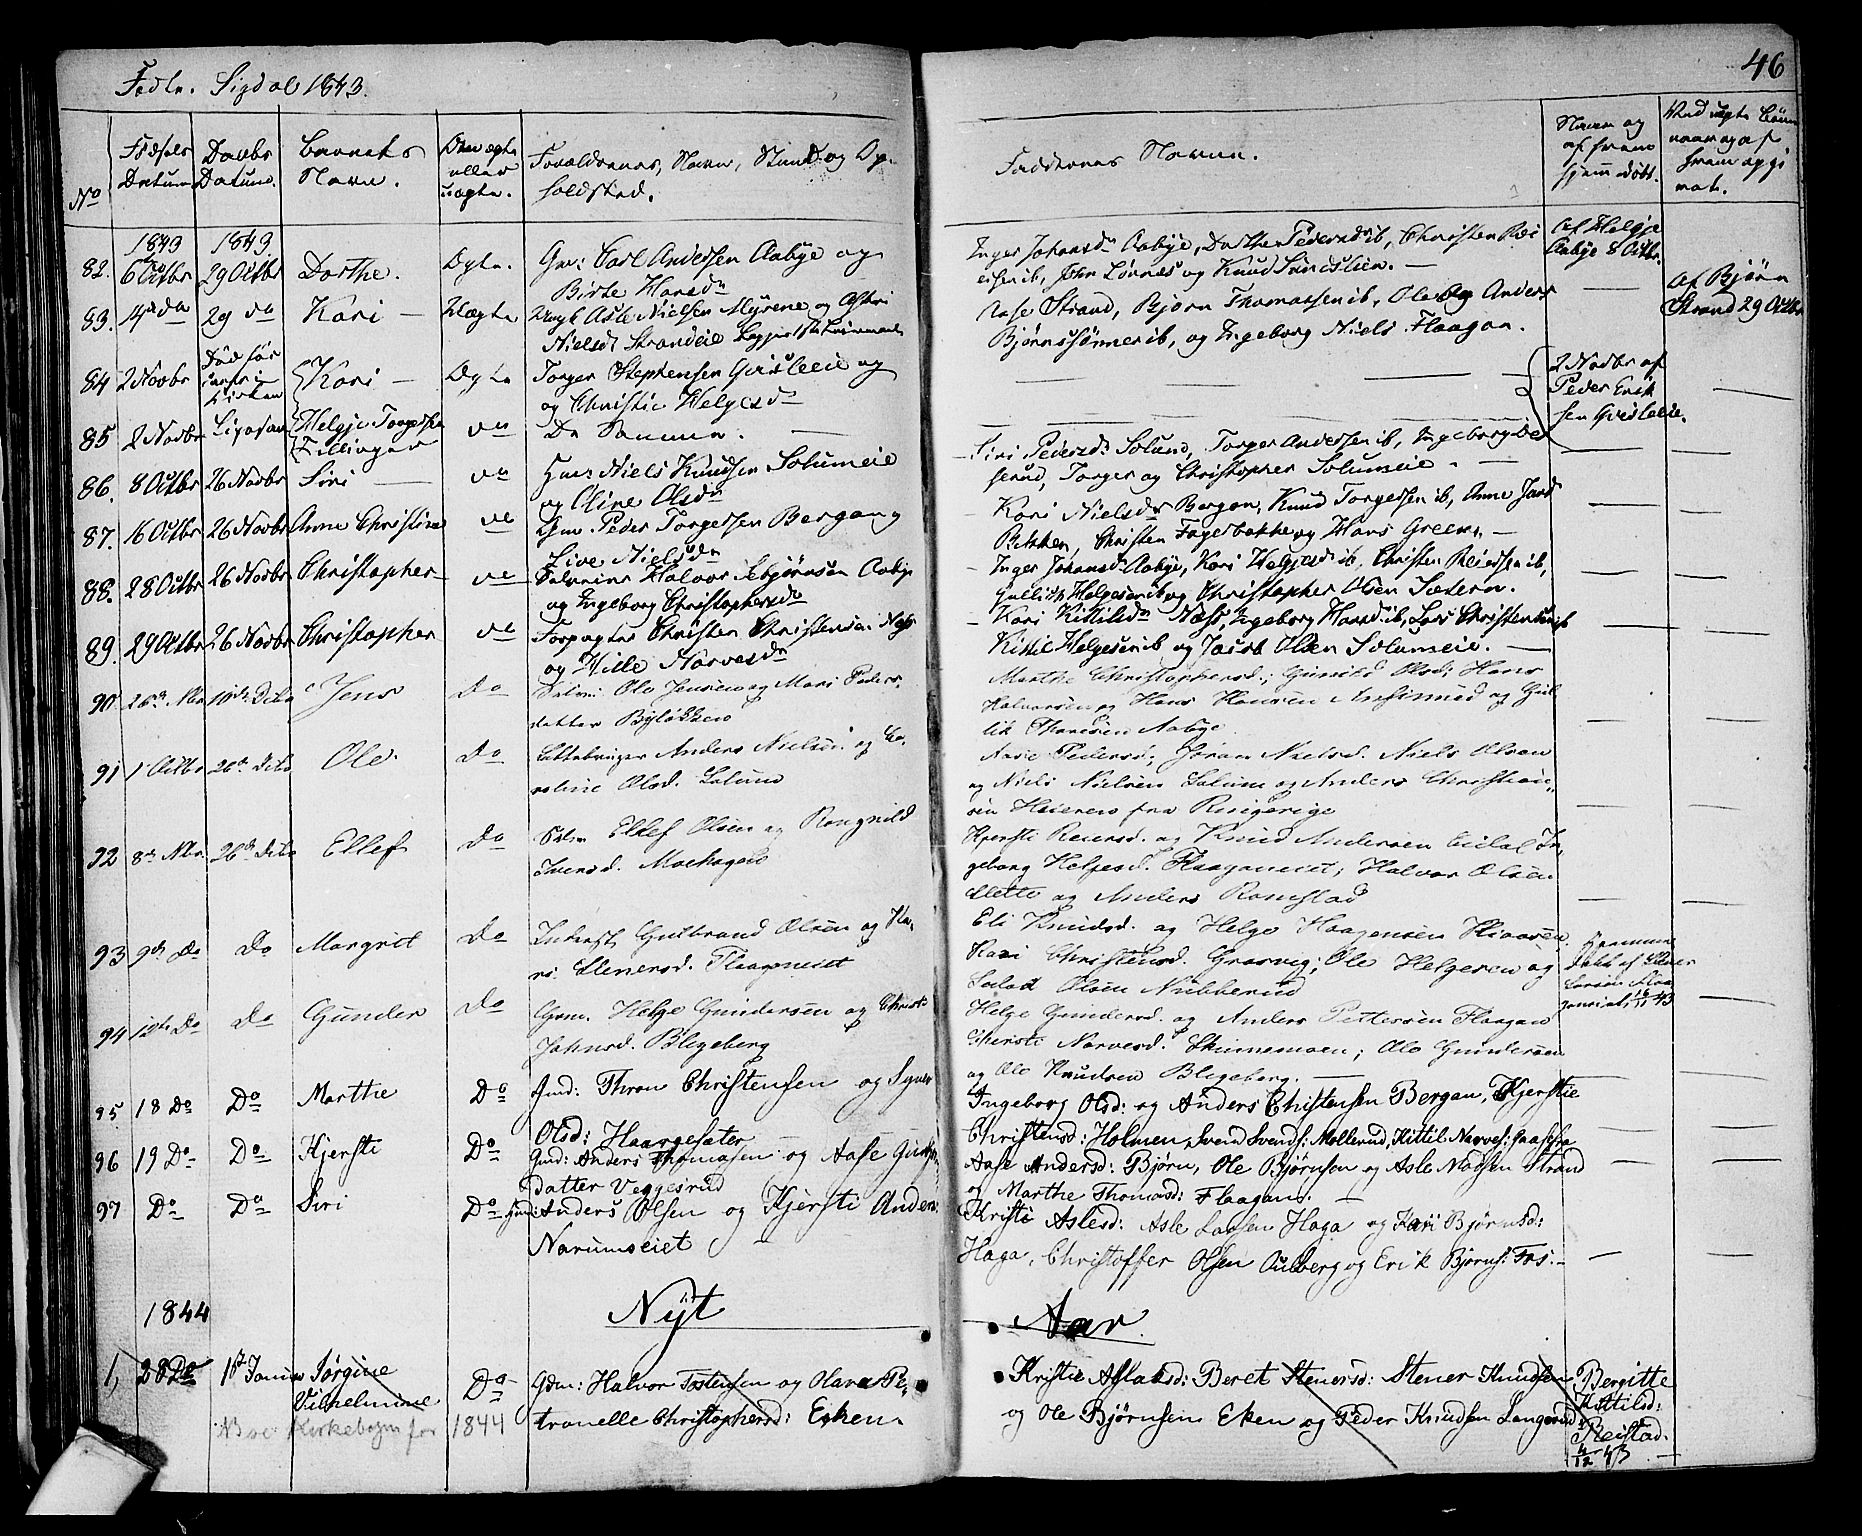 Fødte. Sigdal 1843.
46
No
Fødsels Datum
Daabs Datum.
Barnets Navn.
Om ægte eller uægte.
Forældrenes, Navn, Stand og Opholdsted.
Faddernes Navne.
Naar og af hvem hjemmedøbt.
Ved uægte Børn naar og af hvem opgivet.
1843 1843
82. 6 Octbr 29 Octbr Dorthe. Ægte. Gm: Carl Andersen Aabye og
Birte Hansdr
Inger Johansdr Aabye, Dorthe Pedersdr ib, Christen Rei
ersen ib, John Lørnæs og Knud Simislien. —
Af Helgje Aabye 8 Octbr.
83. 14 da 29 da Kari — Uægte Ungk Asle Nielsen Myrene og Astri
Nielsd Strandeie
Aase Strand, Bjørn Thomassen ib, Ole og Anders
Bjørnssønner ib, og Ingeborg Niels. Flaagan.
af Bjørn Strand 29 Octbr
84 2 Novbr Død før Kari — Ægte Torger Stephensen Grislieeie og
og Christie Helgesdr
2 Novbr af Peder Erik
sen Grislieie.
85 2 Novbr Ligesaa Helgje Torgersen Tillinger do De Samme. —
86. 8 Octbr 26 Novbr Siri — do Huus: Niels Knudsen Solumeie
og Eline Olsdr
Siri Pedersd: Solum, Torger Andersen ib, Ingeborg De
serud, Torger og Christopher Solumeie. —
87. 16 Octbr 26 Novbr Anne Christine do Gm: Peder Torgersen Bergan og
Live Nielsdr
Kari Nielsdr Bergan, Knud Torgersen ib, Anne Jard
Bekken, Christen Fagerbakke og Hans Green. —
88. 28 Octbr 26 Novbr Christopher — do Halvor Asbjørnsen Aabye
og Ingeborg Christophersdr
Inger Johansd Aabye, Kari Helgjesd ib, Christen Reiersen ib,
Gullik Helgesen ib og Christopher Olsen Sætern.
89. 29 Octbr 26 Novbr Christopher do Christen Christensen Næs
og Hille Narvesdr
Kari Kittilsdr Næss, Ingeborg Hansd ib, Lars Christensen ib
Kittil Helgesen ib og Jacob Olsen Solumeie. —
90 Jens Do Ole Jensen og Mari Peders
datter Byløkken
Marthe Christophersd.; Gunild Olsd; Hans
Halvorsen og Hans Hansen Ansimrud og Gul
lik Thoresen Aabye.
91 1 Octbr 26de Dito Ole. Do Anders Nielsen og Ka
roline Olsd. Solum
Aase Pedersd; Jøran Nielsd. Niels Olsen
og Niels Nielsen Solum og Anders Christian
sen Heieren fra Ringerige
92 8de Nbr. 26de Dito Ellef Do Ellef Olsen og Rangnild
Iversd. Moehagen
Kjersti Reiersd. og Knud Andersen Eidal In,
geborg Helgesd. Flaaganeiet; Halvor Olsen
Slette og Anders Ramstad
93 9de Do Do Margrit Do Inderst Gulbrand Olsen og Ka,
ri Stenersd. Flaaganeiet
Eli Knudsd. og Helge Haagensen Skaasen
Kari Christensd. Grasvig; Ole Helgesen og
Solat Olsen Nubberud
94 12te Do Do Gunder Do Gm. Helge Gundersen og Christi
Johnsd. Blegeberg
Helge Gundersd. og Anders Pettersen Flaagan
Christi Narvesd. Skinnemoen; Ole Gundersen
og Ole Knudsen Blegeberg. —
95 18 Do Do Marthe Do Jnd: Thron Christensen og Synev
Olsd: Haargesæter
Ingeborg Olsd: og Anders Christensen Bergan, Kjerstie
Christensd: Holmen, Svein Svends: Mollerud, Kittil Narves: Gaasefra
96 19 Do Do Kjersti Do Gmd: Anders Thomasen og Aase Gulbr
datter Veggesrud
Aase Andersd: Bjørn, Ole Bjørnsen og Asle Madsen Strand
og Marthe Thomasd: Flaagan. —
97 Do Do Siri Do Hmd: Anders Olsen og Kjersti Anders:
Narumseiet —
Kristi Aslesd: Asle Larsen Haga og Kari Bjørnsd:
Haga, Christoffer Olsen Aulberg og Erik Bjørns: Fos: —
1844 Nyt Aar.
1, 28 De 1ste Januar Jørgine Vilhelmine Do Gdm: Halvor Tostensen og Olava Pe,
tronelle Christophersd: Eken.
Kristie Aslaksd: Beret Stenersd: Stener Knudsen
og Ole Bjørnsen Eken og Peder Knudsen Langerud
Bergitte Kittilsd: Reistad.
4/12 43
NB se Kirkebogen for 1844